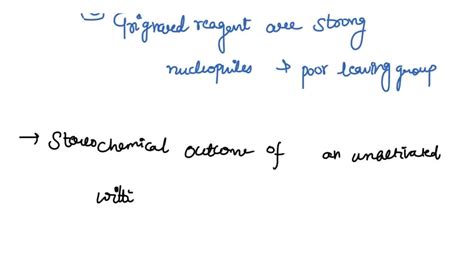 Grignard reagent are strong
nucleophiles → poor leaving group
→ Stereochemical outcome of an unactivated
witti